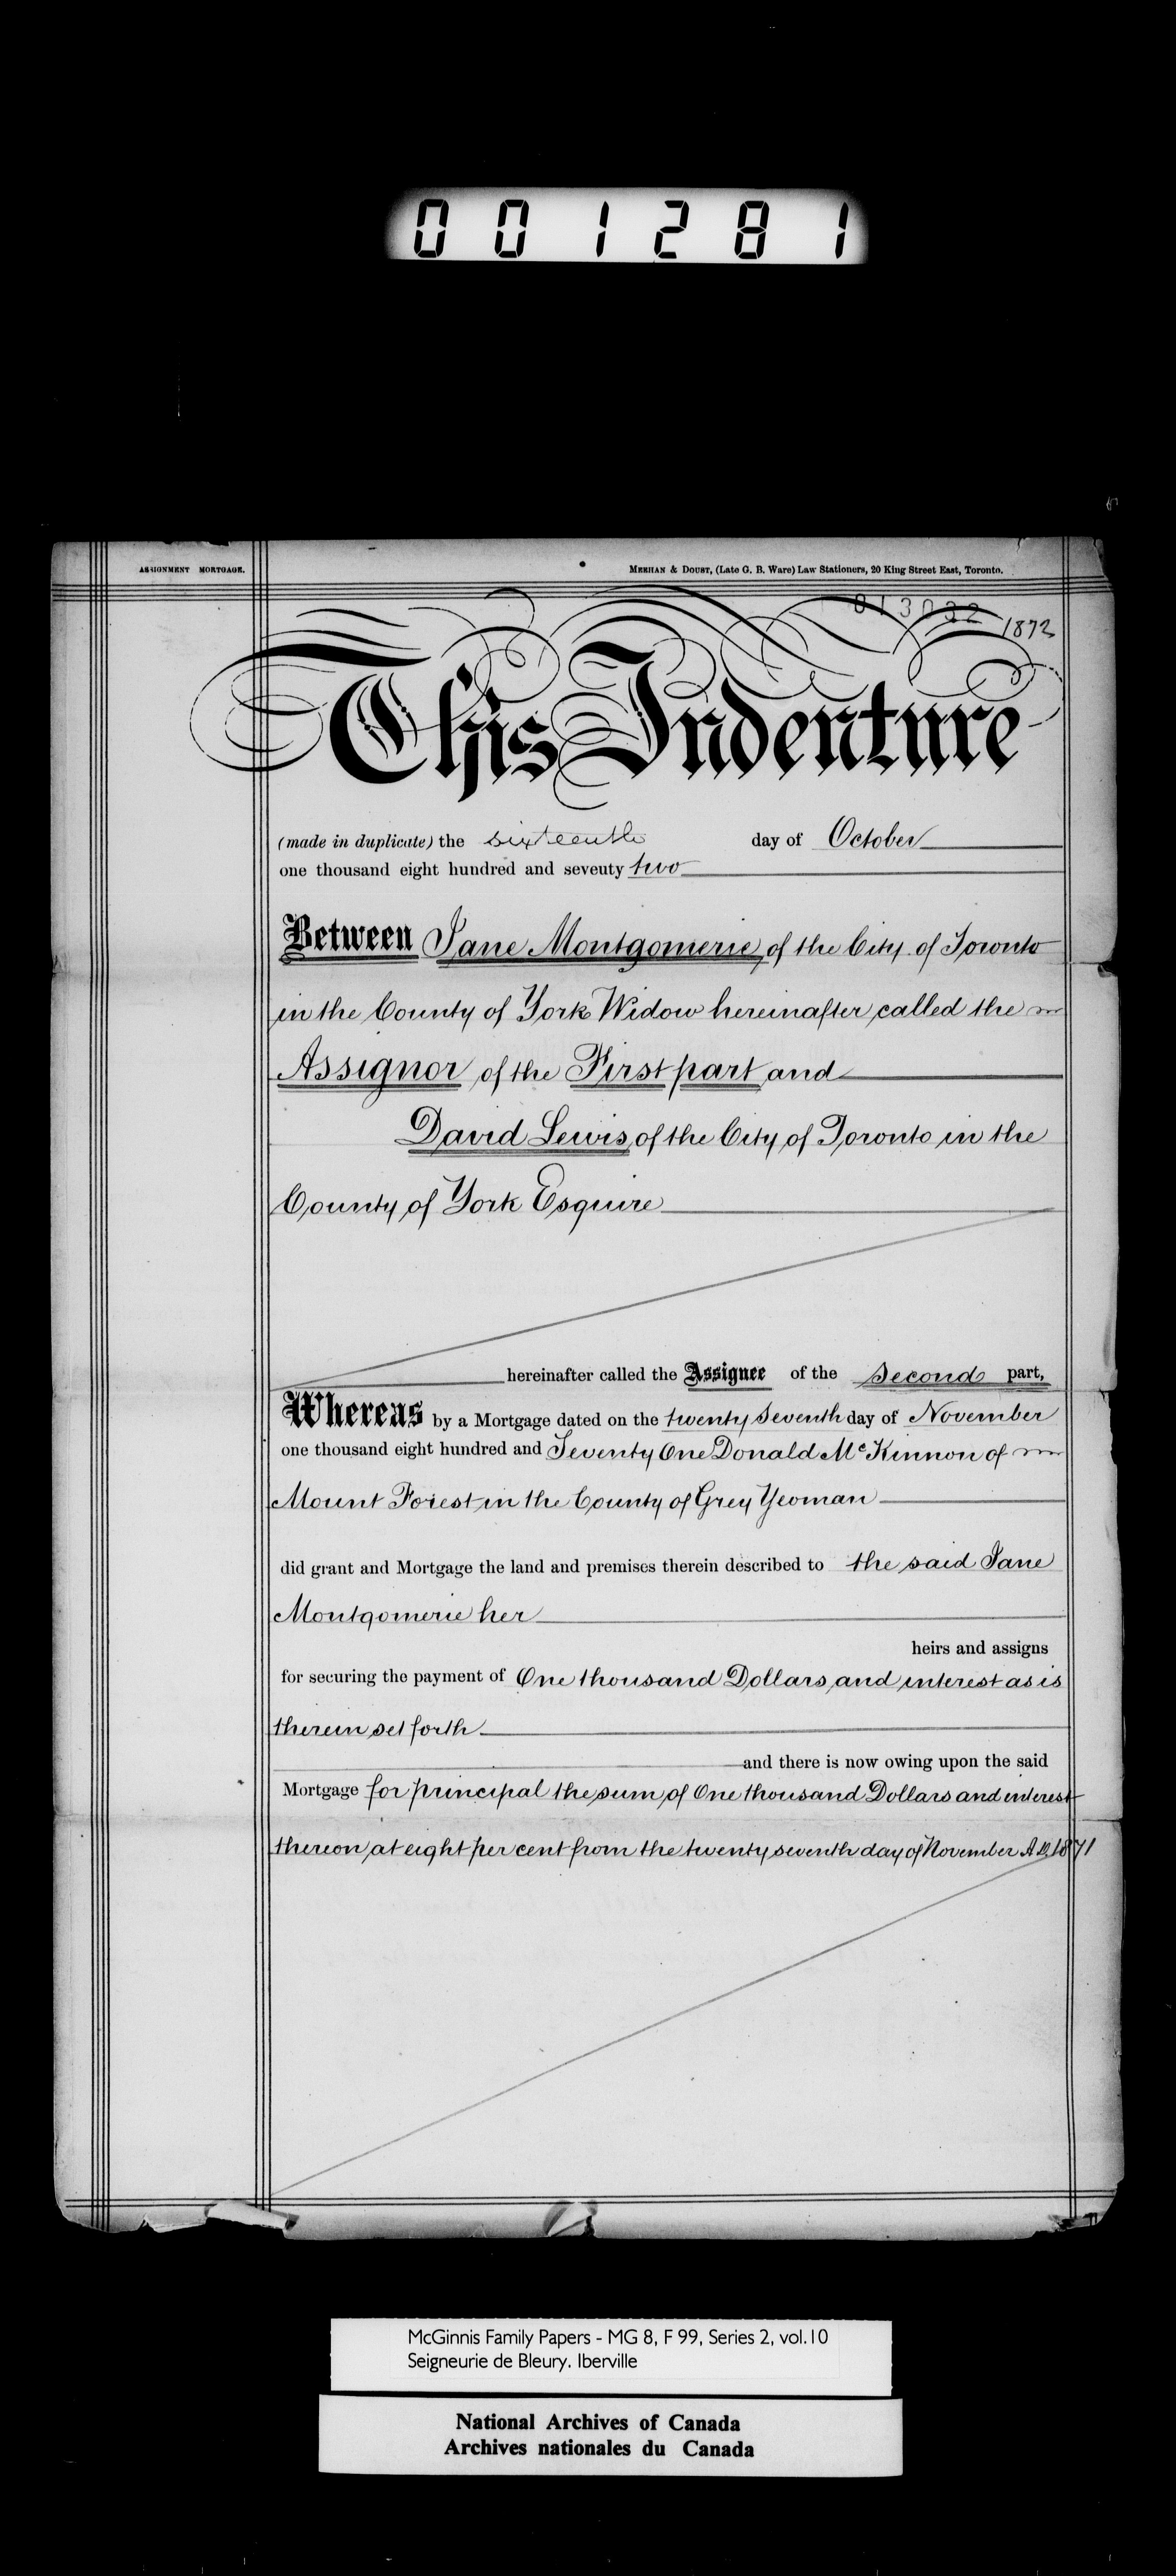 001281
ASSIGNMENT MORTGAGE.
MEEHAN & DOUST, (Late G. B. Ware) Law Stationers, 20 King Street East, Toronto.
013032
1872
This Indenture
(made in duplicate) the sixteenth day of October
one thousand eight hundred and seventy two
Between Jane Montgomerie of the City of Toronto
in the County of York Widow hereinafter called the
Assignor of the First part and
David Lewis of the City of Toronto in the
County of York Esquire
hereinafter called the Assignee of the second part,
Whereas by a Mortgage dated on the twenty seventh day of November
one thousand eight hundred and Seventy One Donald McKinnon of
Mount Forest in the County of Grey Yeoman
did grant and Mortgage the land and premises therein described to the said Jane
Montgomerie her
heirs and assigns
for securing the payment of One thousand Dollars and interest as is
therein set forth
and there is now owing upon the said
Mortgage for principal the sum of One thousand Dollars and interest
thereon at eight per cent from the twenty seventh day of November A.D. 1871
McGinnis Family Papers - MG 8, F 99, Series 2, vol.10
Seigneurie de Bleury. Iberville
National Archives of Canada
Archives nationales du Canada